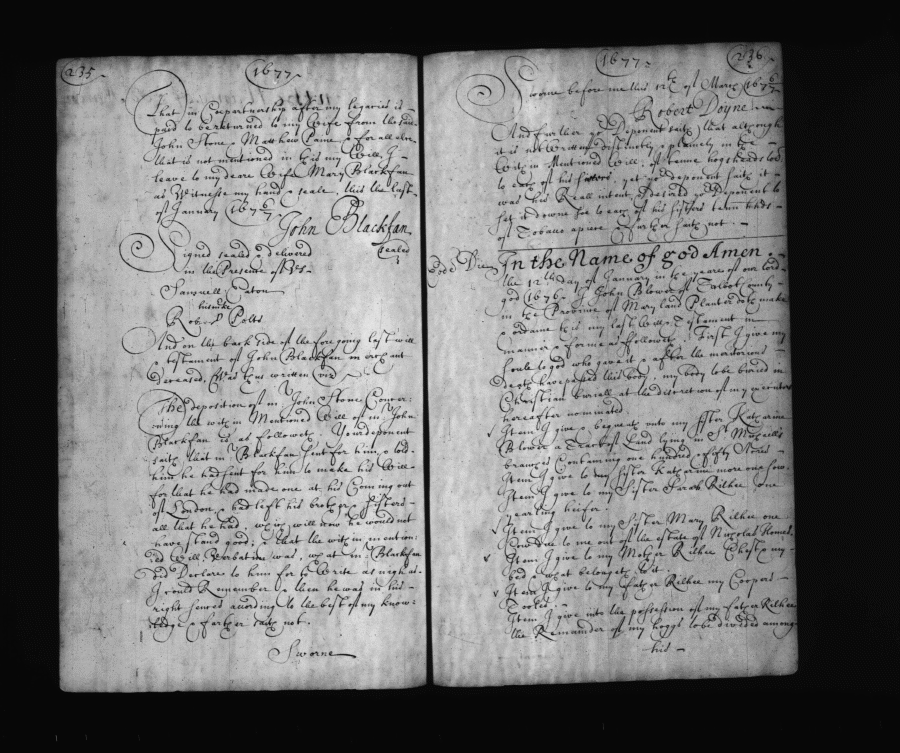 235
1677
That in Copartnership after my legacies is
paid to be returned to my Wife from the said
John Stone & Matthew Paine & for all else
that is not mentioned in this my Will, I
leave to my deare Wife Mary Blackfan
as Witnesse my hand & seale, this the last
of January (1676/7
John Blackfan
sealed
Signed sealed & delivered
in the Presence of Us
Samuell Eaton
his
Robert Potts
And on the back side of the fore going last will
& testament of John Blackfan
Deceased, was thus written (viz)
The deposition of mr John Stone Concer:
ning the within Mentioned Will of mr John
Blackfan is as followeth, Your deponent
saith that mr Blackfan sent for him & told
him he had sent for him to make his Will
for that he had made one at his Coming out
of London, & had left his brother & sisters
all that he had, which will now he would not
have stand good, & that the within mention:
ed Will Verbatim was what mr Blackfan
Did Declare to him for to Write as nigh as
I could Remember & then he was in his
right sences according to the best of my know:
ledge & farther saith not.
Sworne
1677
236
Sworne before me this 12th of March (1676/7
Robert Doyne
And further yor Deponent saith, that although
it is not Written distinctly & plainely in the
Within Mentioned Will, of some hogsheads tob
to each of his sisters, yet yor deponent saith it
was his Reall intent, & desired yor deponent to
set downe for to each of his sisters tenn hhds
of Tobaco apiece & further saith not.
In the Name of god Amen
the 12th day of January in the yeare of our lord
god (1676. I John Blower of Talbot County
in the Province of Maryland Planter doth make
& ordaine this my last Will & Testament in
manner & forme as followeth, First I give my
soule to god who gave it & after the meritorious
Death have passed this body, my body to be buried in
Christian buriall at the discretion of my executors
hereafter nominated
Item I give & bequeath unto my sister Katharine
Blower a Tract of Land lying in St Michaells
branches Containing one hundred & fifty Acres
Item I give to my sister Katharine more one sow.
Item I give to my Sister Sarah Rilhee one
yearling heifer.
Item I give to my Sister Mary Rilhee one
Cow due to me out of the estate of Nicolas Homes
Item I give to my Mother Rilhee Chest & my
bed & what belongeth to it.
Item I give to my father Rilhee my Coopers
Tooles.
Item I give into the possession of my father Rilhee
the Remainder of my hoggs to be divided among
his